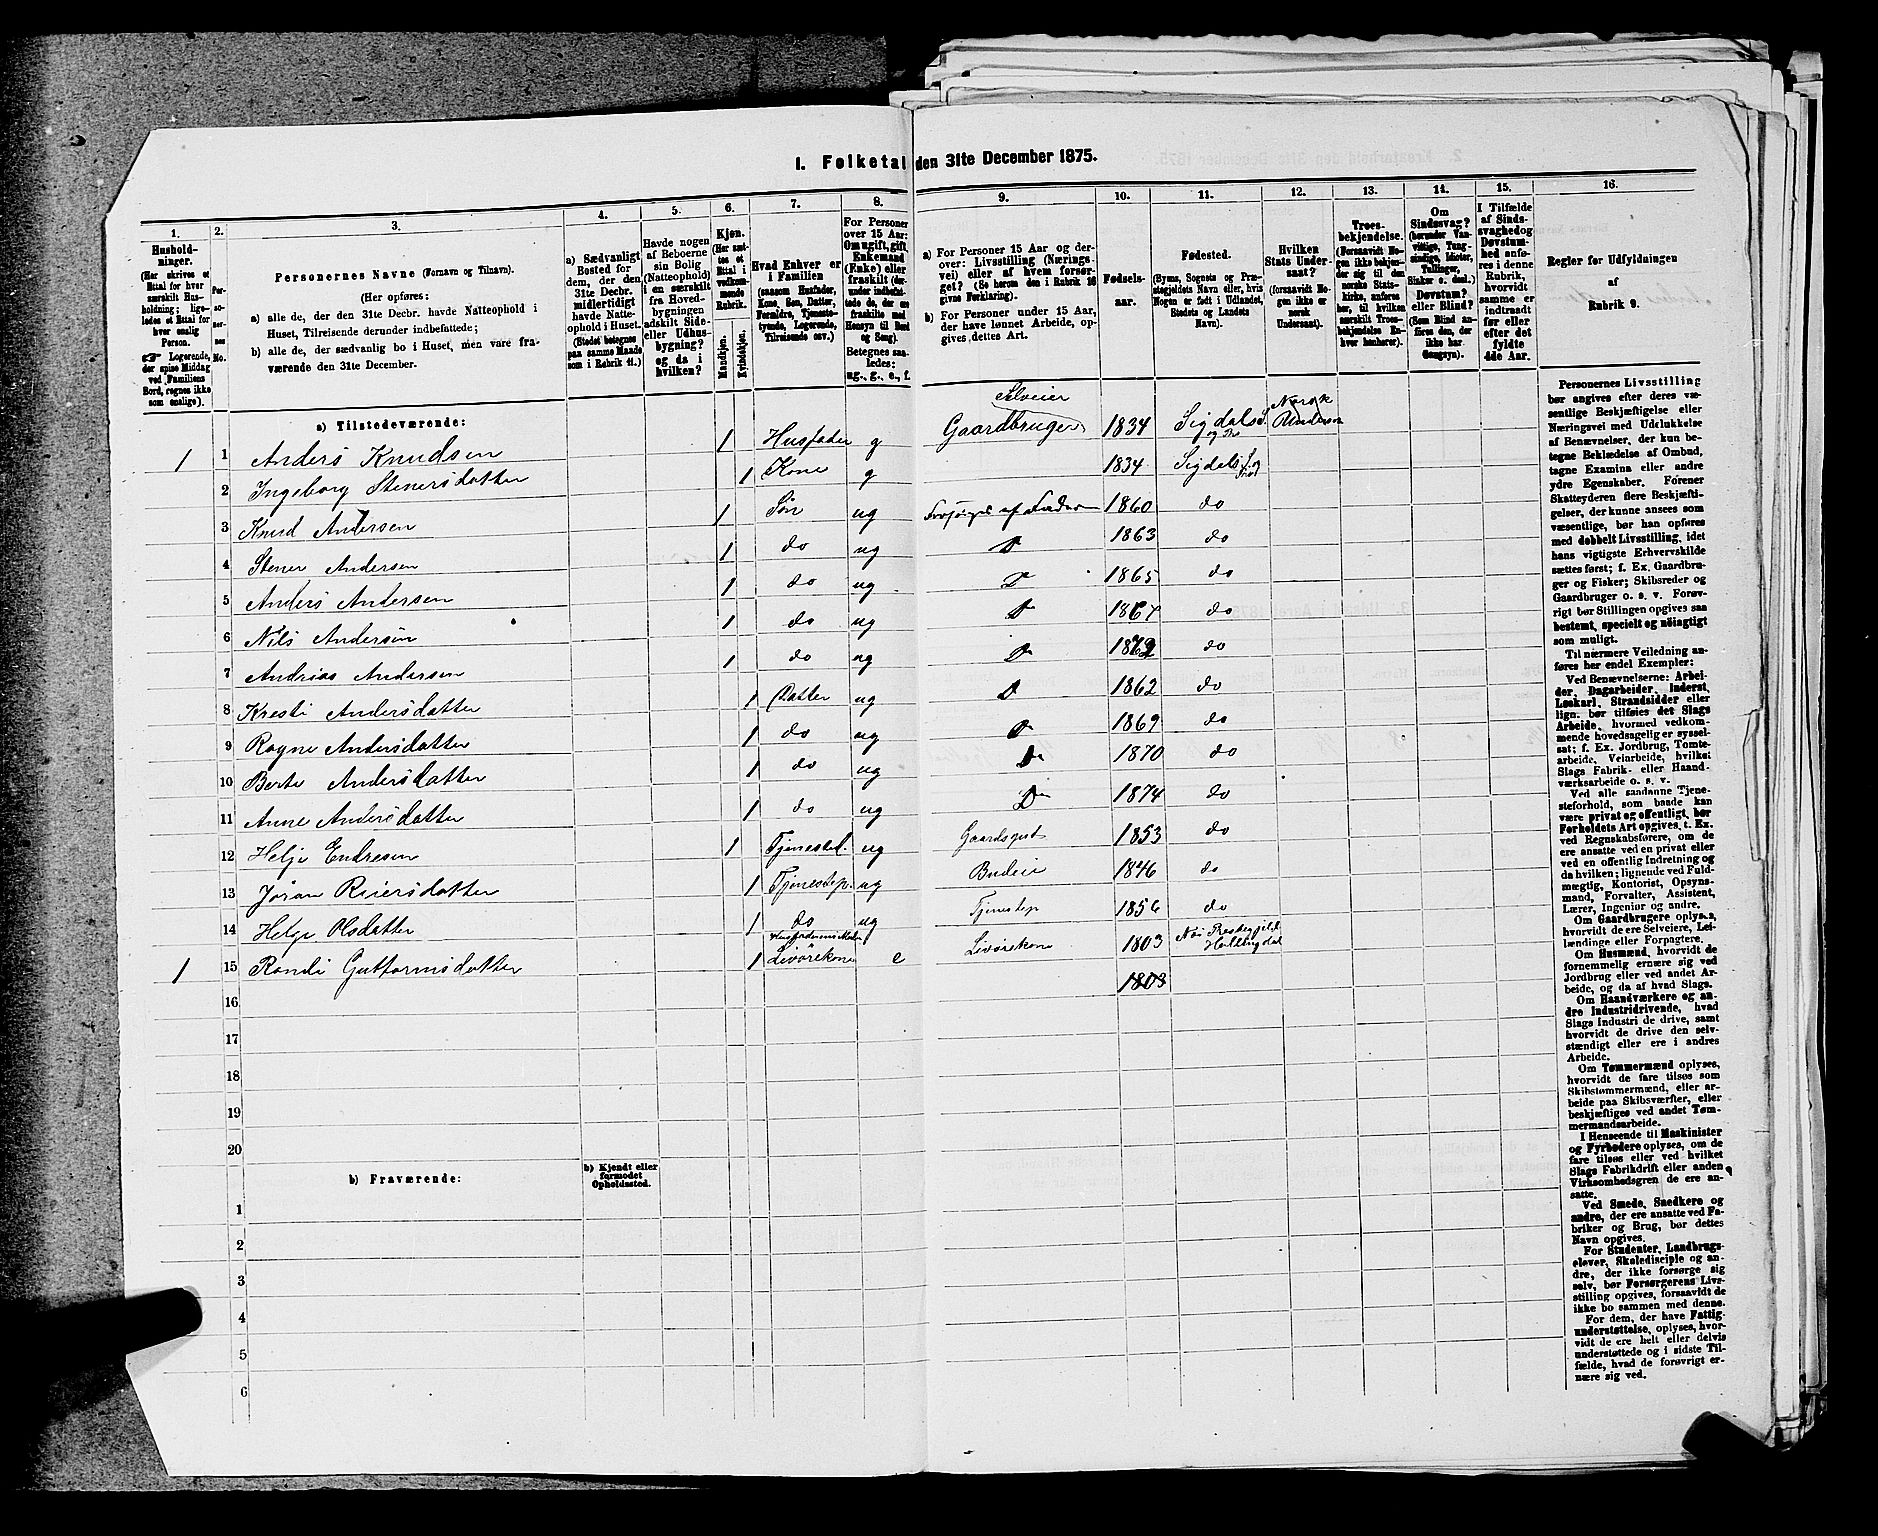 1. Folketal den 31te December 1875.
1. 2. 3. 4. 5. 6. 7. 8. 9. 10. 11. 12. 13. 14. 15. 16.
Hushold-
ninger.
(Her skrives et
Ettal for hver
særskilt Hus-
holdning; lige-
ledes et Ettal for
hver enslig
Person.
☞ Logerende,
der spise Middag
ved Familiens
Bord, regnes ikke
som enslige).
Per-
so-
ner-
nes
No.
Personernes Navne (Fornavn og Tilnavn).
(Her opføres:
a) alle de, der den 31te Decbr. havde Natteophold i
Huset, Tilreisende derunder indbefattede;
b) alle de, der sædvanlig bo i Huset, men vare fra-
værende den 31te December.
a) Sædvanligt
Bosted for
dem, der den
31te Decbr.
midlertidigt
havde Natte-
ophold i Huset.
(Stedet betegnes
paa samme Maade
som i Rubrik 11.)
Havde nogen
af Beboerne
sin Bolig
(Natteophold)
i en særskilt
fra Hoved-
bygningen
adskilt Side-
eller Udhus-
bygning?
og da i
hvilken?
Kjøn.
(Her sæt-
tes et
Ettal i
vedkom-
mende
Rubrik.
Mandkjøn.
Kvindekjøn.
Hvad Enhver er
i Familien
(saasom Husfader,
Kone, Søn, Datter,
Forældre, Tjeneste-
tyende, Logerende,
Tilreisende osv.)
For Personer
over 15 Aar:
Om ugift, gift,
Enkemand
(Enke) eller
fraskilt (der-
under indbefat-
tede de, der ere
fraskilte med
Hensyn til Bord
og Seng).
Betegnes saa-
ledes:
ug., g., e., f.
a) For Personer 15 Aar og der-
over: Livsstilling (Nærings-
vei) eller af hvem forsør-
get? (Se herom den i Rubrik 16
givne Forklaring).
b) For Personer under 15 Aar,
der have lønnet Arbeide, op-
gives dettes Art.
Fødsels-
aar.
Fødested.
(Byens, Sognets og Præ-
stegjeldets Navn eller, hvis
Nogen er født i Udlandet,
Stedets og Landets
Navn).
Hvilken
Stats Under-
saat?
(forsaavidt No-
gen ikke er
norsk
Undersaat).
Troes-
bekjendelse.
(Forsaavidt No-
gen ikke bekjen-
der sig til den
norske Stats-
kirke, anføres
her, til hvilken
særskilt Troes-
bekjendelse En-
hver henhører).
Om
Sindssvag?
(herunder Van-
vittige, Tung-
sindige, Idioter,
Tullinger,
Sinker o. desl.)
Døvstum?
eller Blind?
(Som Blind an-
føres den, der
ikke har
Gangsyn).
I Tilfælde
af Sinds-
svaghed og
Døvstum-
hed anfø-
res i denne
Rubrik,
hvorvidt
samme er
indtraadt
før eller
efter det
fyldte
4de Aar.
Regler for Udfyldningen
af
Rubrik 9.
a) Tilstedeværende:
1 1 Anders Knudsen 1 Husfader g Selveier Gaardbruger 1834 Sigdals S. og Pr Norsk Undersaa
2 Ingeborg Stenersdatter 1 Kone g 1834 Sigdals
3 Knud Andersen 1 Søn ug Forsørges af Faderen 1860 do
4 Stener Andersen 1 do ug D 1863 do
5 Anders Andersen 1 do ug D 1865 do
6 Nils Andersen 1 do ug D 1867 do
7 Andrias Andersen 1 do ug Do do
8 Kresti Andersdatter 1 Datter ug D 1862 do
9 Ragne Andersdatter 1 do ug Do 1869 do
10 Berte Andersdatter 1 do ug Do 1870 do
11 Anne Andersdatter 1 do ug Do 1874 do
12 Helje Endresen 1 Tjenested. ug Gaardsgut 1853 do
13 Jøran Reiersdatter 1 Tjenestep. ug Budeie 1846 do
14 Helge Olsdatter 1 do ug Tjenestep 1856 do
1 15 Randi Guttormsdatter 1 Husfaderens Moder Livørekone e Livørekone 1803 Næs Prestegjeld Hallingdal
16 1803
17
18
19
20
b) Fraværende:
b) Kjendt eller
formodet
Opholdssted.
1
2
3
4
5
6
Personernes Livsstilling
bør angives efter deres væ-
sentlige Beskjæftigelse eller
Næringsvei med Udelukkelse
af Benævnelser, der kun be-
tegne Beklædelse af Ombud,
tagne Examina eller andre
ydre Egenskaber. Forener
Skatteyderen flere Beskjæfti-
gelser, der kunne ansees som
væsentlige, bør han opføres
med dobbelt Livsstilling, idet
hans vigtigste Erhvervskilde
sættes først; f. Ex. Gaardbru-
ger og Fisker; Skibsreder og
Gaardbruger o. s. v. Forøv-
rigt bør Stillingen opgives saa
bestemt, specielt og nøiagtigt
som muligt.
Til nærmere Veiledning an-
føres her endel Exempler:
Ved Benævnelserne: Arbei-
der, Dagarbeider, Inderst,
Løskarl, Strandsidder eller
lign. bør tilføies det Slags
Arbeide, hvormed vedkom-
mende hovedsagelig er syssel-
sat; f. Ex. Jordbrug, Tømte-
arbeide, Veiarbeide, hvilket
Slags Fabrik- eller Haand-
værksarbeide o. s. v.
Ved alle saadanne Tjene-
steforhold, som baade kan
være privat og offentligt, bør
Forholdets Art opgives, t. Ex.
ved Regnskabsførere, om de
ere ansatte ved en privat eller
ved en offentlig Indretning og
da hvilken; lignende ved Fuld-
mægtig, Kontorist, Opsyns-
mand, Forvalter, Assistent,
Lærer, Ingeniør og andre.
Om Gaardbrugere oplyses,
hvorvidt de ere Selveiere, Lei-
lændinge eller Forpagtere.
Om Husmænd, hvorvidt de
fornemmelig ernære sig ved
Jordbrug eller ved andet Ar-
beide, og da af hvad Slags.
Om Haandværkere og an-
dre Industridrivende, hvad
Slags Industri de drive, samt
hvorvidt de drive den selv-
stændigt eller ere i andres
Arbeide.
Om Tømmermænd oplyses,
hvorvidt de fare tilsøs som
Skibstømmermænd, eller ar-
beide paa Skibsværfter, eller
beskjæftiges ved andet Tøm-
mermandsarbeide.
I Henseende til Maskinister
og Fyrbødere oplyses, om de
fare tilsøs eller ved hvilket
Slags Fabrikdrift eller anden
Virksomhedsgren de ere an-
satte.
Ved Smede, Snedkere og
andre, der ere ansatte ved Fa-
briker og Brug, bør dettes
Navn opgives.
For Studenter, Landbrugs-
elever, Skoledisciple og an-
dre, der ikke forsørge sig
selv, bør Forsørgerens Livs-
stilling opgives, forsaavidt de
ikke bo sammen med denne.
For dem, der have Fattig-
understøttelse, oplyses, hvor-
vidt de ere helt eller delvis
understøttede og i sidste Til-
fælde, hvad de forøvrigt er-
nære sig ved.